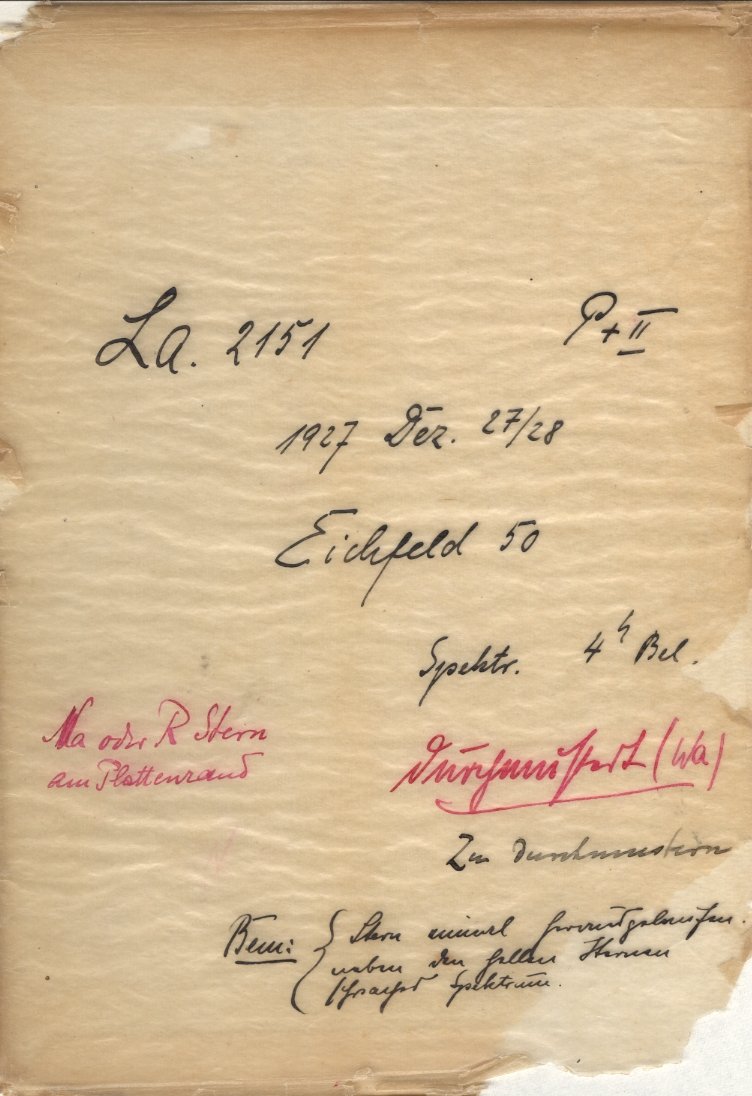 La. 2151 P + II
1927 Dez. 27/28
Eichfeld 50
Spektr. 4h Bel.
Na oder R Stern
am Plattenrand
durchmustert (Wa)
Zu durchmustern
Bem: Stern einmal herausgelaufen.
neben den hellen Sternen
schwaches Spektrum.